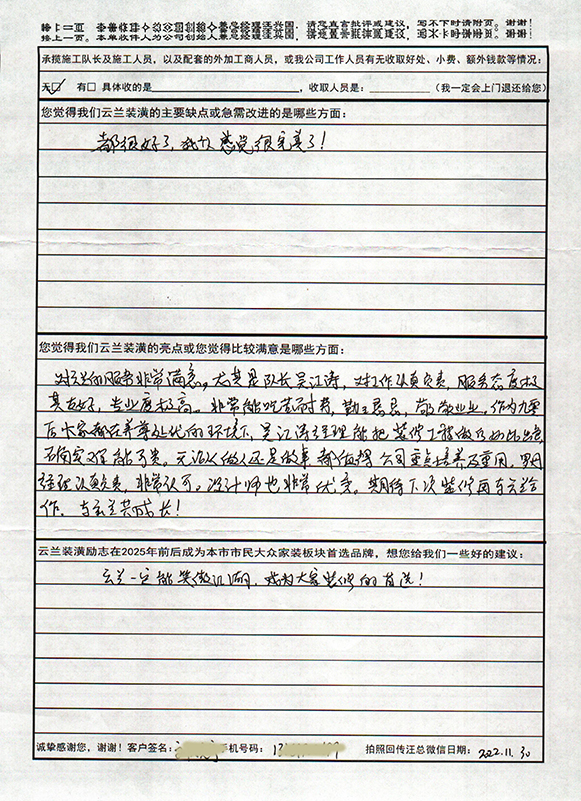 接上一页。本单收件人为公司创始人兼总经理汪兴国，请您直言批评或建议，写不下时请附页。谢谢！
承揽施工队长及施工人员，以及配套的外加工商人员，或我公司工作人员有无收取好处、小费、额外钱款等情况：
无☑ 有□ 具体收的是＿＿＿，收取人员是：＿＿＿（我一定会上门退还给您）
您觉得我们云兰装潢的主要缺点或急需改进的是哪些方面：
都很好了，我太感觉很完美了！
您觉得我们云兰装潢的亮点或您觉得比较满意是哪些方面：
对云兰的服务非常满意。尤其是队长吴江涛，对工作认真负责，服务态度极
其友好，专业度极高。非常能吃苦耐劳，勤勤恳恳，敬业，作为九零
后大家都在养尊处优的环境下，吴江涛经理能把装修工程做的如此出色
无论做人还是做事都值得公司重点培养及重用，
经理认真负责，非常认可。设计师也非常优秀。期待下次装修再与云兰合
作，与云兰共成长！
云兰装潢励志在2025年前后成为本市市民大众家装板块首选品牌，想您给我们一些好的建议：
云兰一定能笑傲江湖，成为大家装修的首选！
诚挚感谢您，谢谢！客户签名： 手机号码： 拍照回传汪总微信日期：2022.11.30